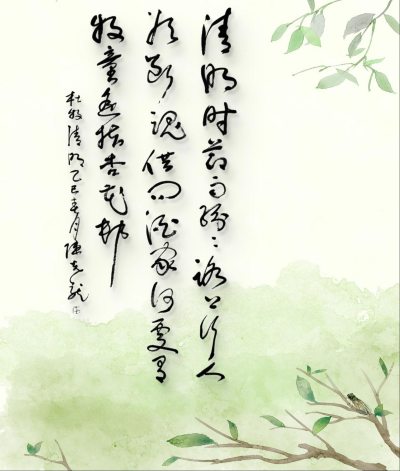 清明时节雨纷纷路上行人
欲断魂借问酒家何处有
牧童遥指杏花村
杜牧清明乙巳春月陈克龙